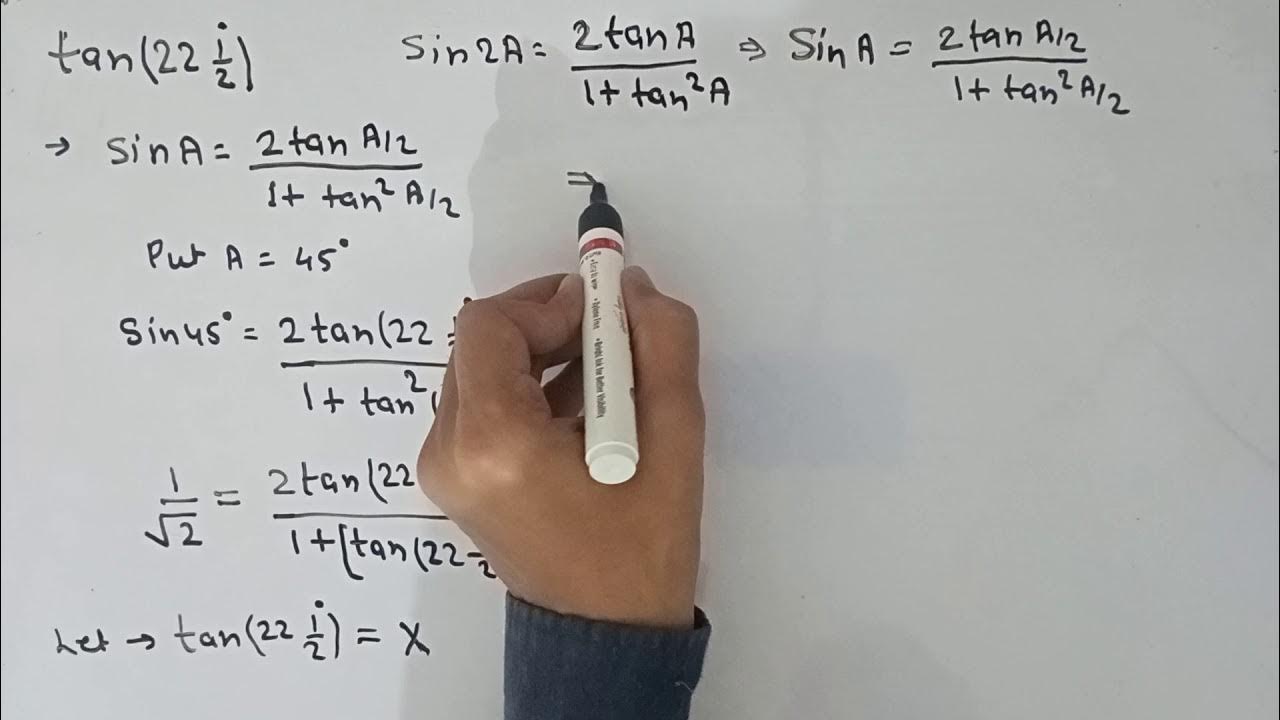 tan(22 1/2°)
Sin2A = 2tanA / 1+tan²A ⇒ SinA = 2tanA/2 / 1+tan²A/2
→ SinA = 2tanA/2 / 1+tan²A/2
⇒
Put A = 45°
Sin45° = 2tan(22 / 1+tan²(
1/√2 = 2tan(22 / 1+[tan(22 1/2
Let → tan(22 1/2°) = X